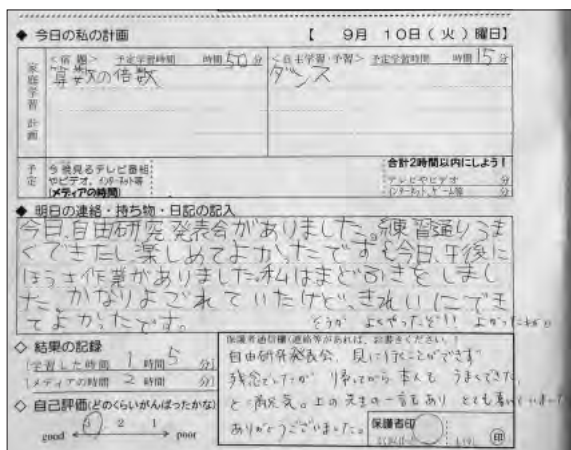 ◆ 今日の私の計画 【 9月 10日(火)曜日】
家庭学習計画
<宿題> 予定学習時間 時間 50 分
算数の倍数
<自主学習・予習> 予定学習時間 時間 15 分
ダンス
予定
今夜見るテレビ番組
やビデオ、インターネット等
(メディアの時間)
合計2時間以内にしよう!
テレビやビデオ 分
インターネット、ゲーム等 分
◆ 明日の連絡・持ち物・日記の記入
今日、自由研究発表会がありました。練習通りうま
くできたし楽しめてよかったです。今日、午後に
ほうき作業がありました。私はまどふきをしまし
た。かなりよごれていたけど、きれいにできて
てよかったです。
そうか よくやったぞ!! よかったね
◇ 結果の記録
[学習した時間 1 時間 5 分]
[メディアの時間 2 時間 分]
◇ 自己評価(どのくらいがんばったかな)
3 2 1
good poor
保護者通信欄(連絡等があれば、お書きください。)
自由研究発表会、見に行くことができず
残念でしたが 帰ってから 本人も うまくできた
と 満足気。上の先生の一言もあり とても
ありがとうございました。
保護者印
印